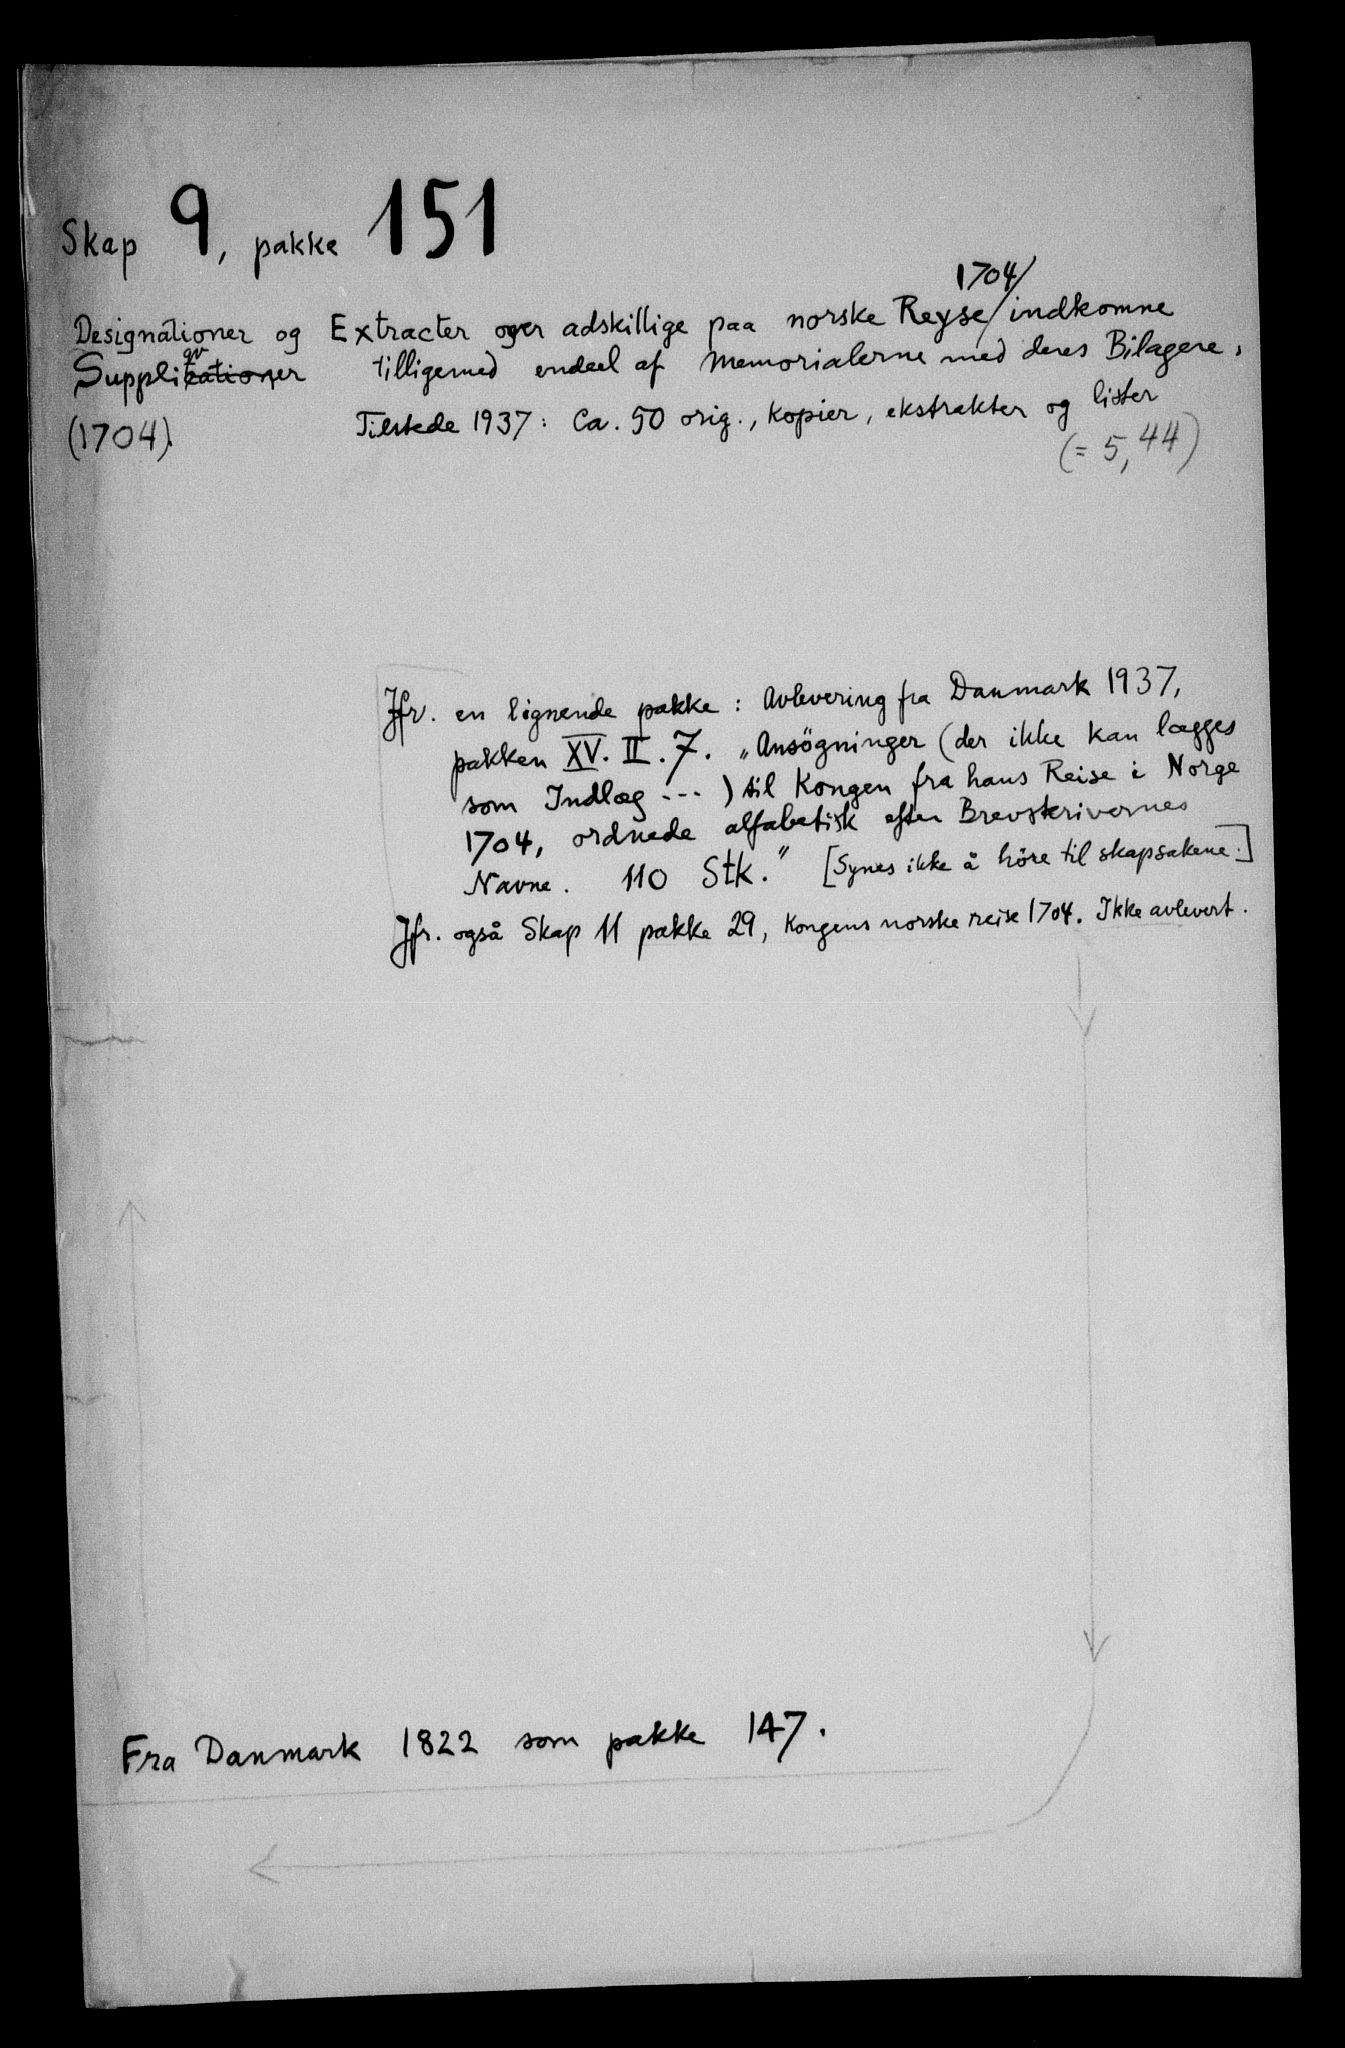 Skap 9, pakke 151
1704/
Designationer og Extracter over adskillige paa norske Reyse/indkomne
qv
Supplikationer tilligemed endeel af Memorialerne med deres Bilagere,
(1704). Tilstede 1937: Ca. 50 orig., kopier, ekstrakter og lister
(= 5,44)
Jfr. en lignende pakke: Avlevering fra Danmark 1937,
pakken XV. II. 7. „Ansögninger (der ikke kan lægges
som Indlæg ---) til Kongen fra hans Reise i Norge
1704, ordnede alfabetisk efter Brevskrivernes
Navne. 110 Stk.” [Synes ikke å höre til skapsakene.]
Jfr. også Skap 11 pakke 29, Kongens norske reise 1704. Ikke avlevert.
Fra Danmark 1822 som pakke 147.